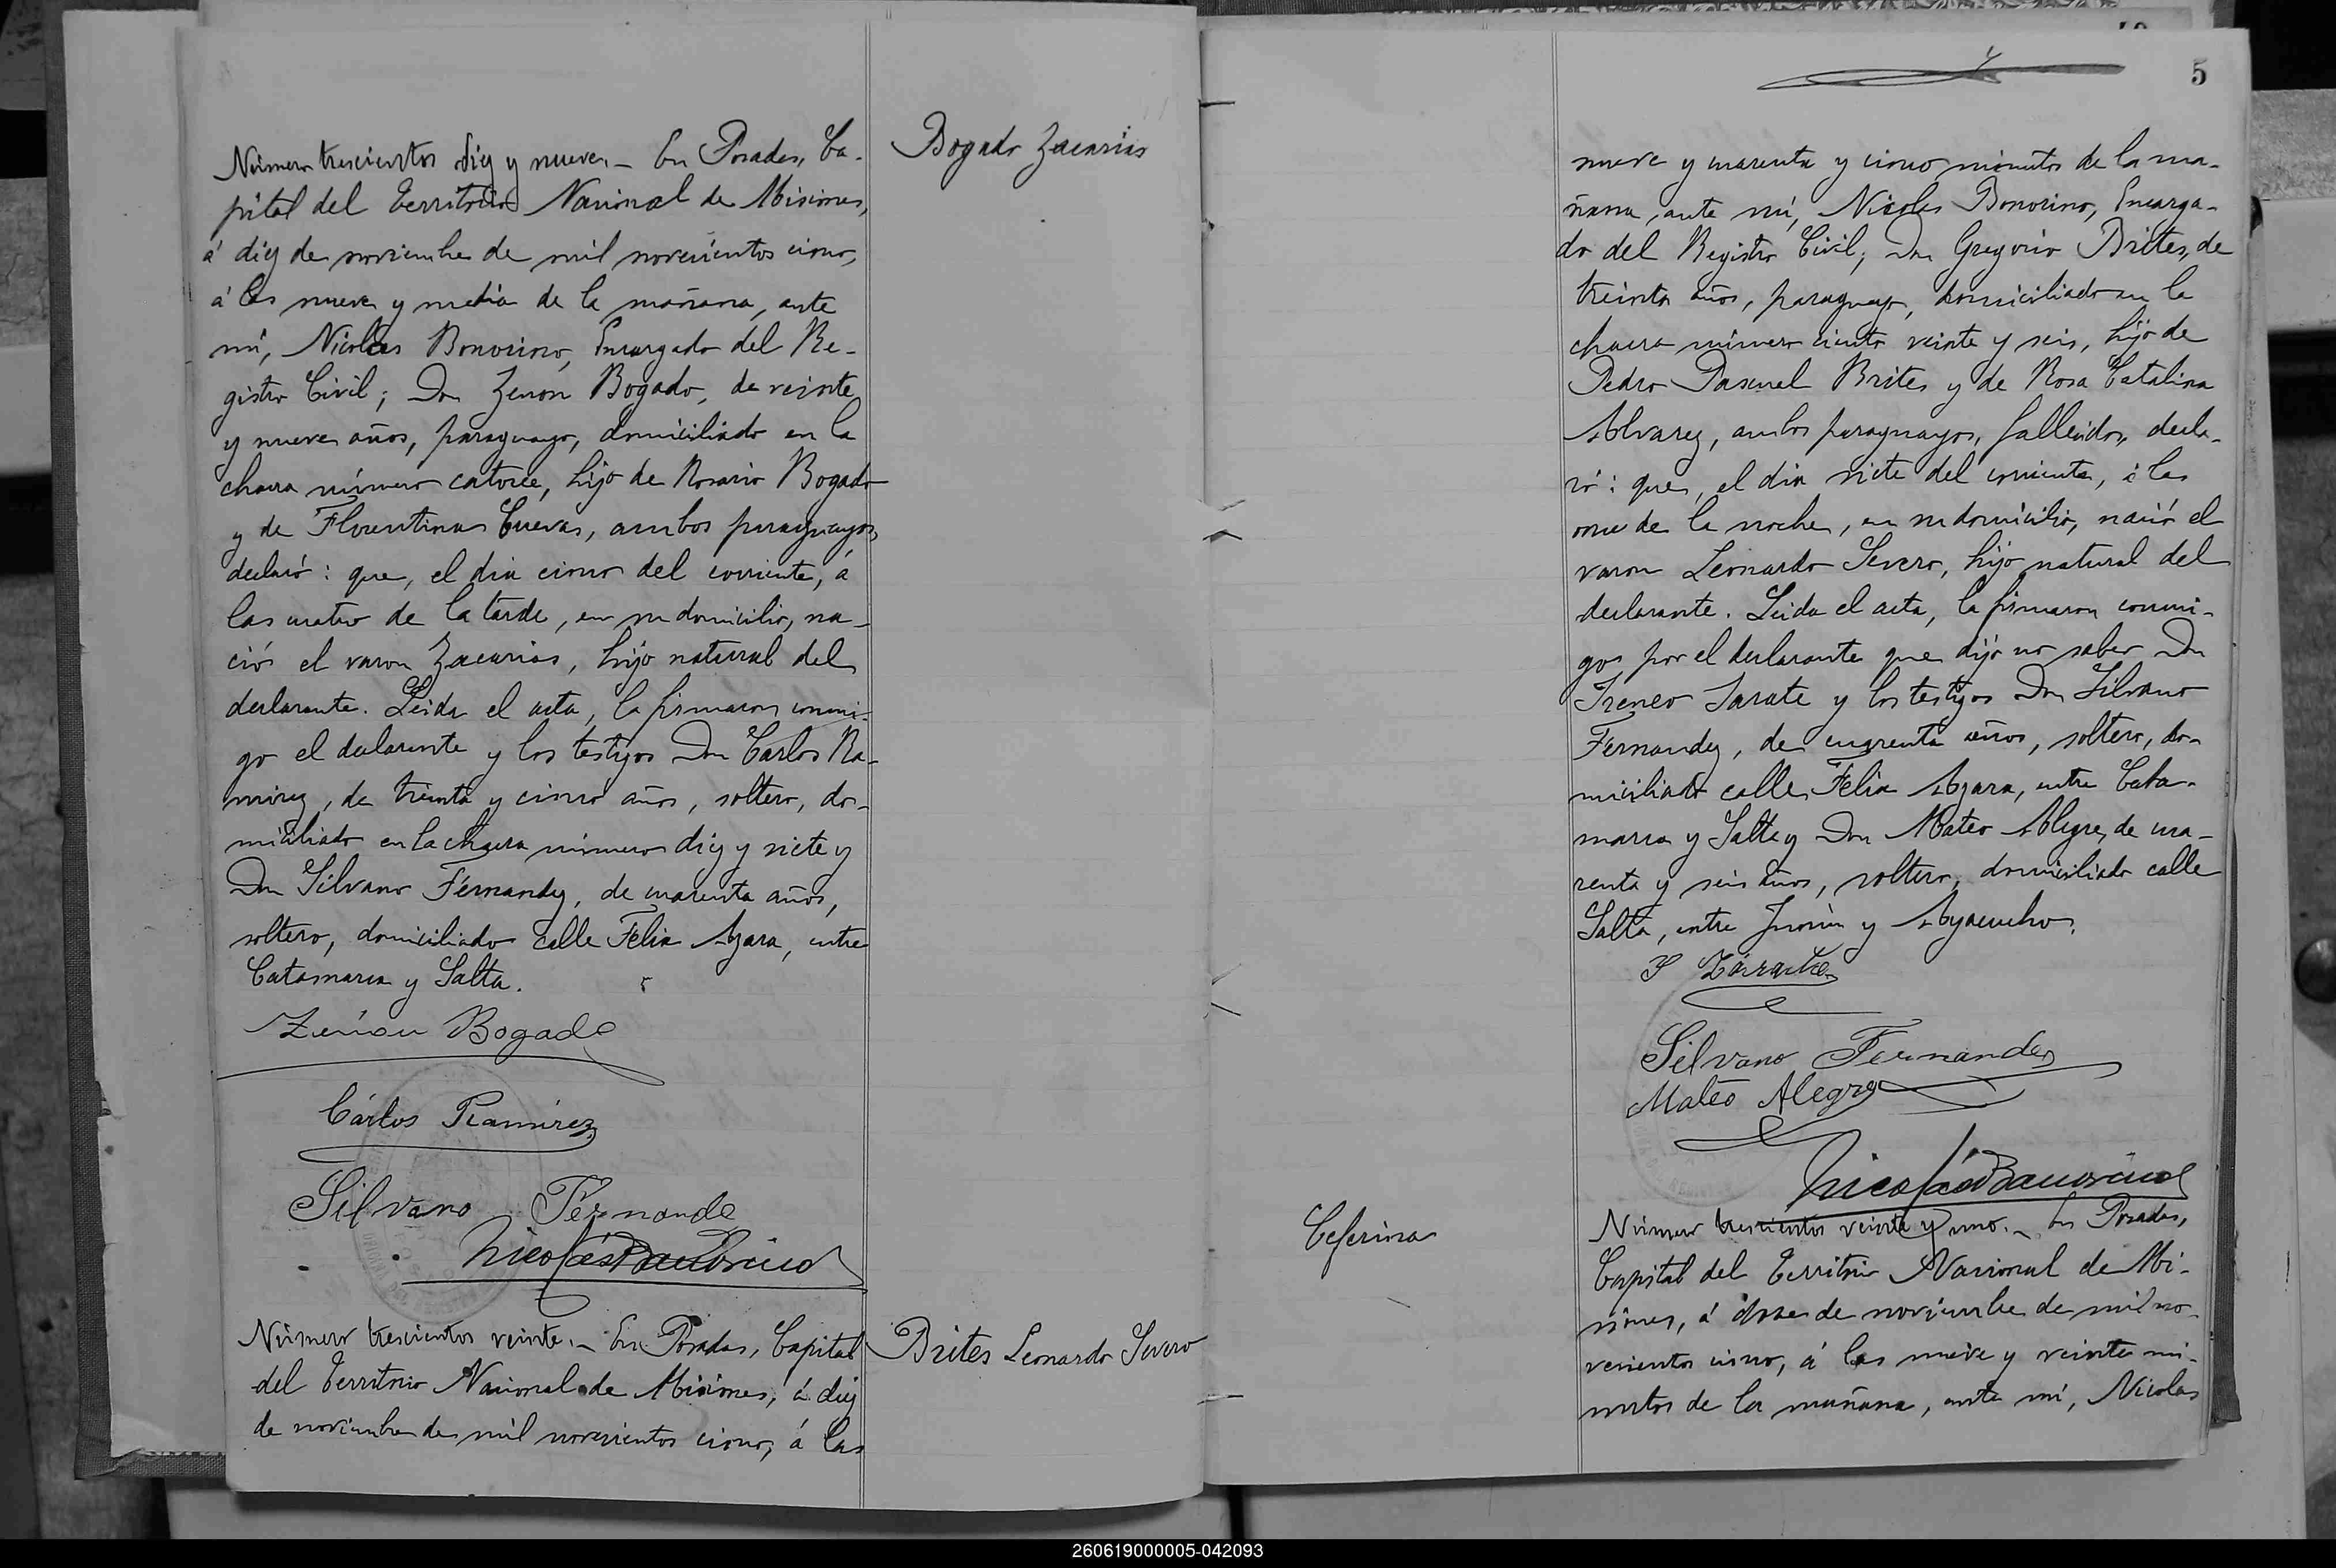 Bogado Zacarias
Número trescientos diez y nueve.- En Posadas, Ca-
pital del Territorio Nacional de Misiones,
á diez de noviembre de mil novecientos cinco,
á las nueve y media de la mañana, ante
mí, Nicolas Bonorino, Encargado del Re-
gistro Civil; Don Zenon Bogado, de veinte
y nueve años, paraguayo, domiciliado en la
chacra número catorce, hijo de Rosario Bogado
y de Florentina Cuevas, ambos paraguayos,
declaró: que, el dia cinco del corriente, á
las cuatro de la tarde, en su domicilio, na-
ció el varon Zacarias, hijo natural del
declarante. Leida el acta, la firmaron conmi-
go el declarante y los testigos Don Carlos Ra-
mirez, de treinta y cinco años, soltero, do-
miciliado en la chacra número diez y siete y
Don Silvano Fernandez, de cuarenta años,
soltero, domiciliado calle Felix Azara, entre
Catamarca y Salta.
Zenón Bogado
Cárlos Ramírez
Silvano Fernande
Nicolás Bonorino
Brites Leonardo Severo
Número trescientos veinte.- En Posadas, Capital
del Territorio Nacional de Misiones, á diez
de noviembre de mil novecientos cinco, á las
5
nueve y cuarenta y cinco minutos de la ma-
ñana, ante mí, Nicolas Bonorino, Encarga-
do del Registro Civil; Don Gregorio Brites, de
treinta años, paraguayo, domiciliado en la
chacra número ciento veinte y seis, hijo de
Pedro Pascual Brites y de Rosa Catalina
Alvarez, ambos paraguayos, fallecidos, decla-
ró: que, el dia siete del corriente, á las
once de la noche, en su domicilio, nació el
varon Leonardo Severo, hijo natural del
declarante. Leida el acta, la firmaron conmi-
go por el declarante que dijo no saber Don
Ireneo Sarate y los testigos Don Silvano
Fernandez, de cuarenta años, soltero, do-
miciliado calle Felix Azara, entre Cata-
marca y Salta y Don Mateo Alegre, de cua-
renta y seis años, soltero, domiciliado calle
Salta, entre Junin y Ayacucho.
I Zárate
Silvano Fernandez
Mateo Alegre
Nicolás Bonorino
Ceferina
Número trescientos veinte y uno.- En Posadas,
Capital del Territorio Nacional de Mi-
siones, á doce de noviembre de mil no-
vecientos cinco, á las nueve y veinte mi-
nutos de la mañana, ante mí, Nicolas
260619000005-042093